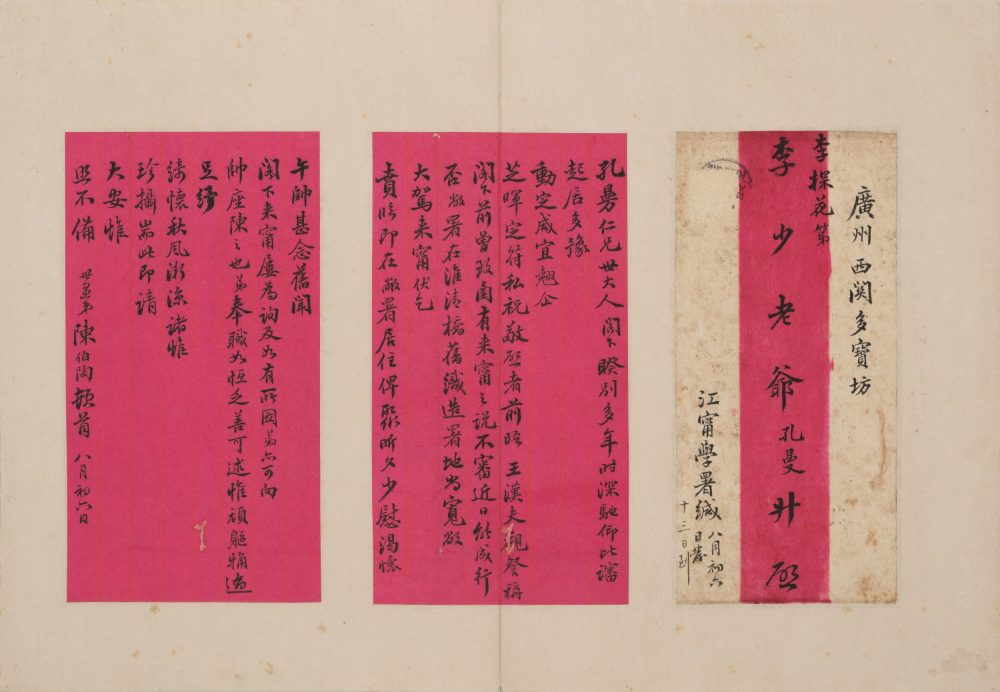 廣州西関多寶坊
李探花第
李少老爺孔曼升啟
江甯學署緘八月初六
日發
十三日到
孔曼仁兄世大人閣下睽别多年時深馳仰比審
起居多豫
動定咸宜翹企
芝暉定符私祝敬啟者前晤王漢夫觀詧稱
閣下前曾致函有来甯之説不審近日能成行
否敝署在淮清橋舊織造署地尚寬敞
大駕来甯伏乞
賁臨即在敝署居住俾聚昕夕少慰渴懷
午帥甚念舊聞
閣下来甯屢為詢及如有所圖弟亦可向
帥座陳之也弟奉職如恒乏善可述惟頑軀犕適
足紓
綺懷秋風漸涼諸惟
珍攝耑此即請
大安惟
照不備
世弟陳伯陶頓首八月初六日